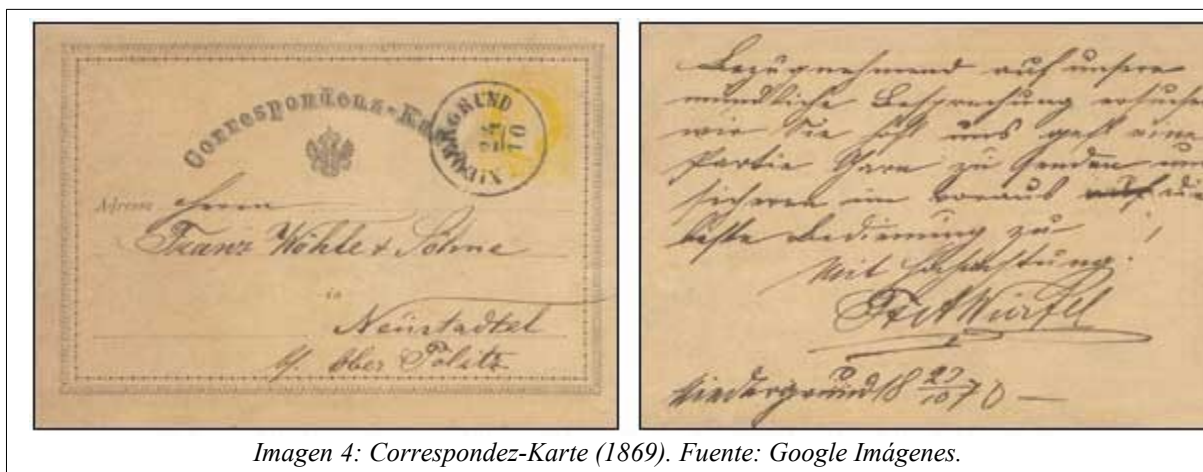 Correspondenz-Karte
NIEDERGRUND
24
10
Adresse Herrn
Franz Wöhle & Söhne
in
Neüstadtel
Ober Politz
Bezugnehmend auf unsere
mündliche Besprechung ersuchen
wir Sie uns eine
Partie Garn zu senden
sichern im voraus die
beste Bedienung zu
Mit Hochachtung.
Würfel
Niedergrund 18 23/10 70 —
Imagen 4: Correspondez-Karte (1869). Fuente: Google Imágenes.